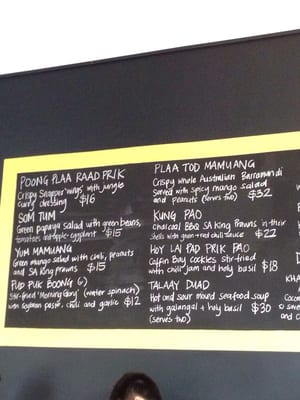 POONG PLAA RAAD PRIK
Crispy Snapper 'wings' with jungle
curry dressing $16
SOM TUM
Green papaya salad with green beans,
tomatoes + apple eggplant $15
YUM MAMUANG
Green mango salad with chili, peanuts
and SA King prawns $15
PUD PUK BOONG (G)
Stir-fried 'Morning Glory' (water spinach)
with soybean paste, chili and garlic $12
PLAA TOD MAMUANG
Crispy whole Australian Barramundi
served with spicy mango salad
and peanuts (serves two) $32
KUNG PAO
Charcoal BBQ SA King Prawns in their
shells with green + red chili sauce $22
HOY LAI PAD PRIK PAO
Coffin Bay cockles stir-fried
with chili jam and holy basil $18
TALAAY DUAD
Hot and sour mixed seafood soup
with galangal + holy basil $30
(serves two)